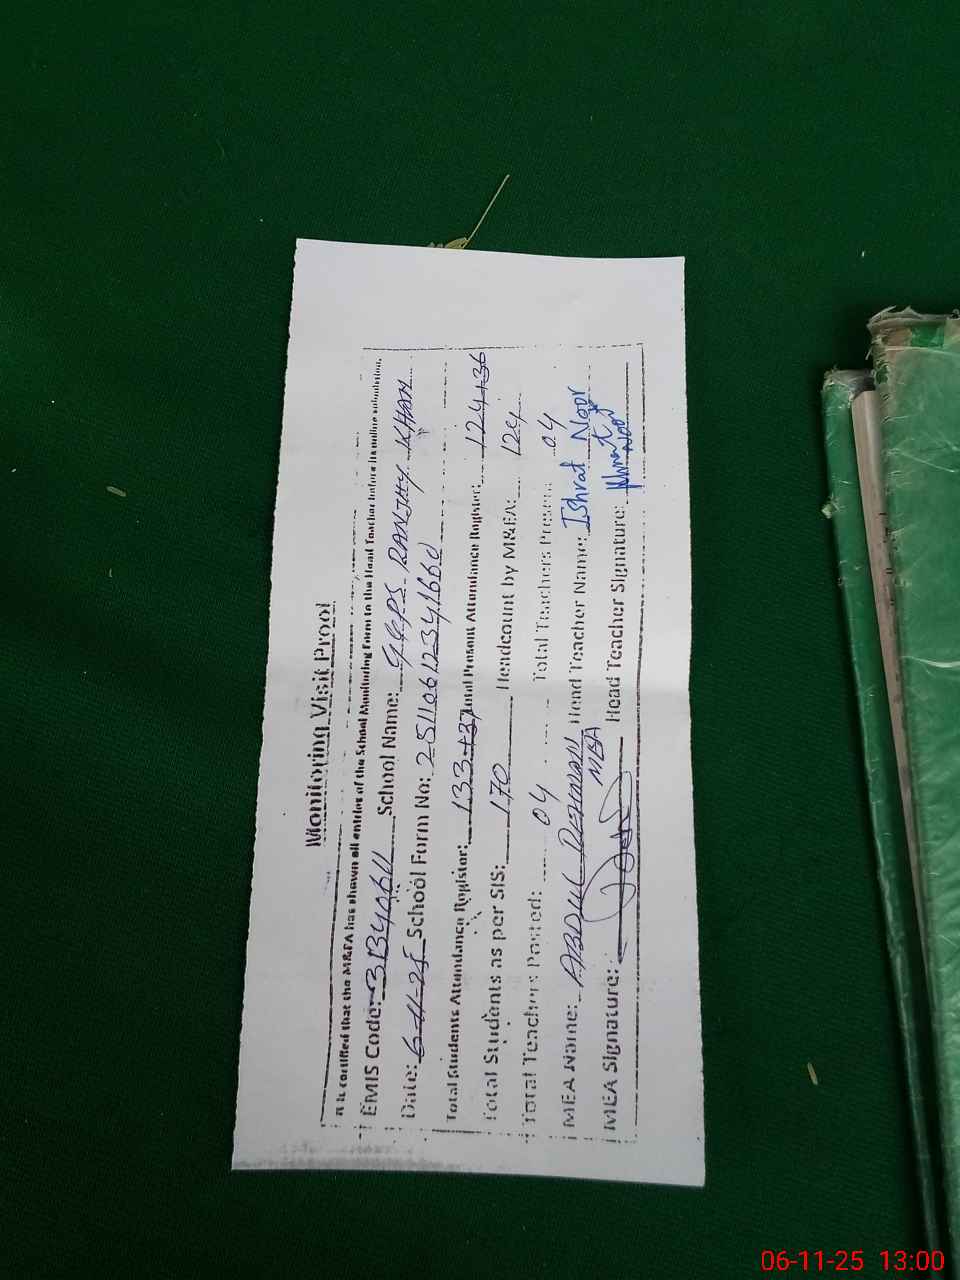 Monitoring Visit Proof
It is certified that the M&EA has shown all entries of the School Monitoring Form to the Head Teacher before its online submission.
EMIS Code: 3134060 School Name: GGPS RANJHY KHAN
Date: 6-11-25 School Form No: 25110612341660
Total Students Attendance Register: 133+37 Total Present Attendance Register: 124+36
Total Students as per SIS: 170 Headcount by M&EA: 124
Total Teachers Posted: 04 Total Teachers Present: 04
MEA Name: ABDUL REHMAN Head Teacher Name: Ishrat Noor
MEA Signature: MEA Head Teacher Signature: Noor
06-11-25 13:00